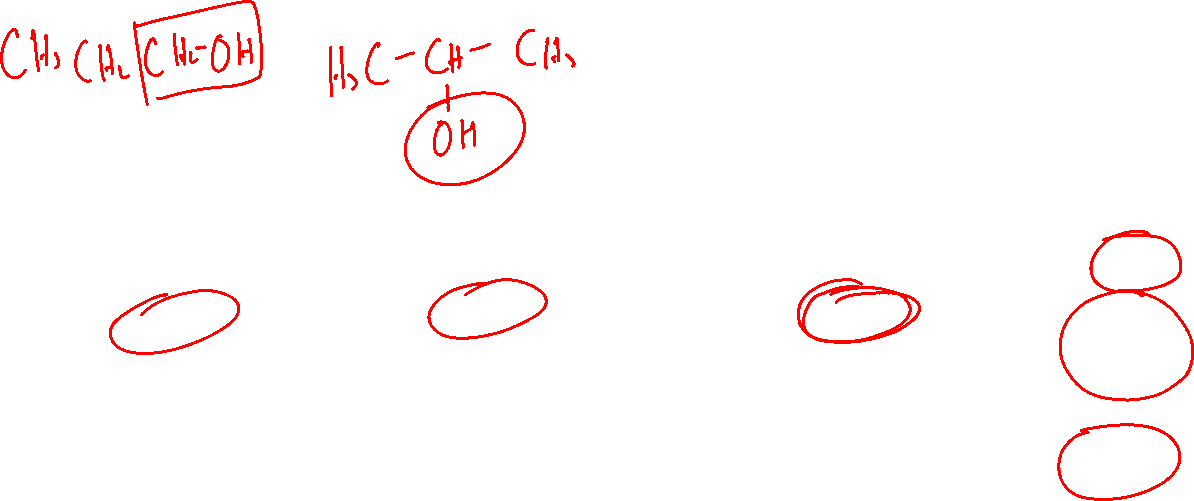 CH₃ CH₂ CH₂-OH
H₃C - CH - CH₃
OH